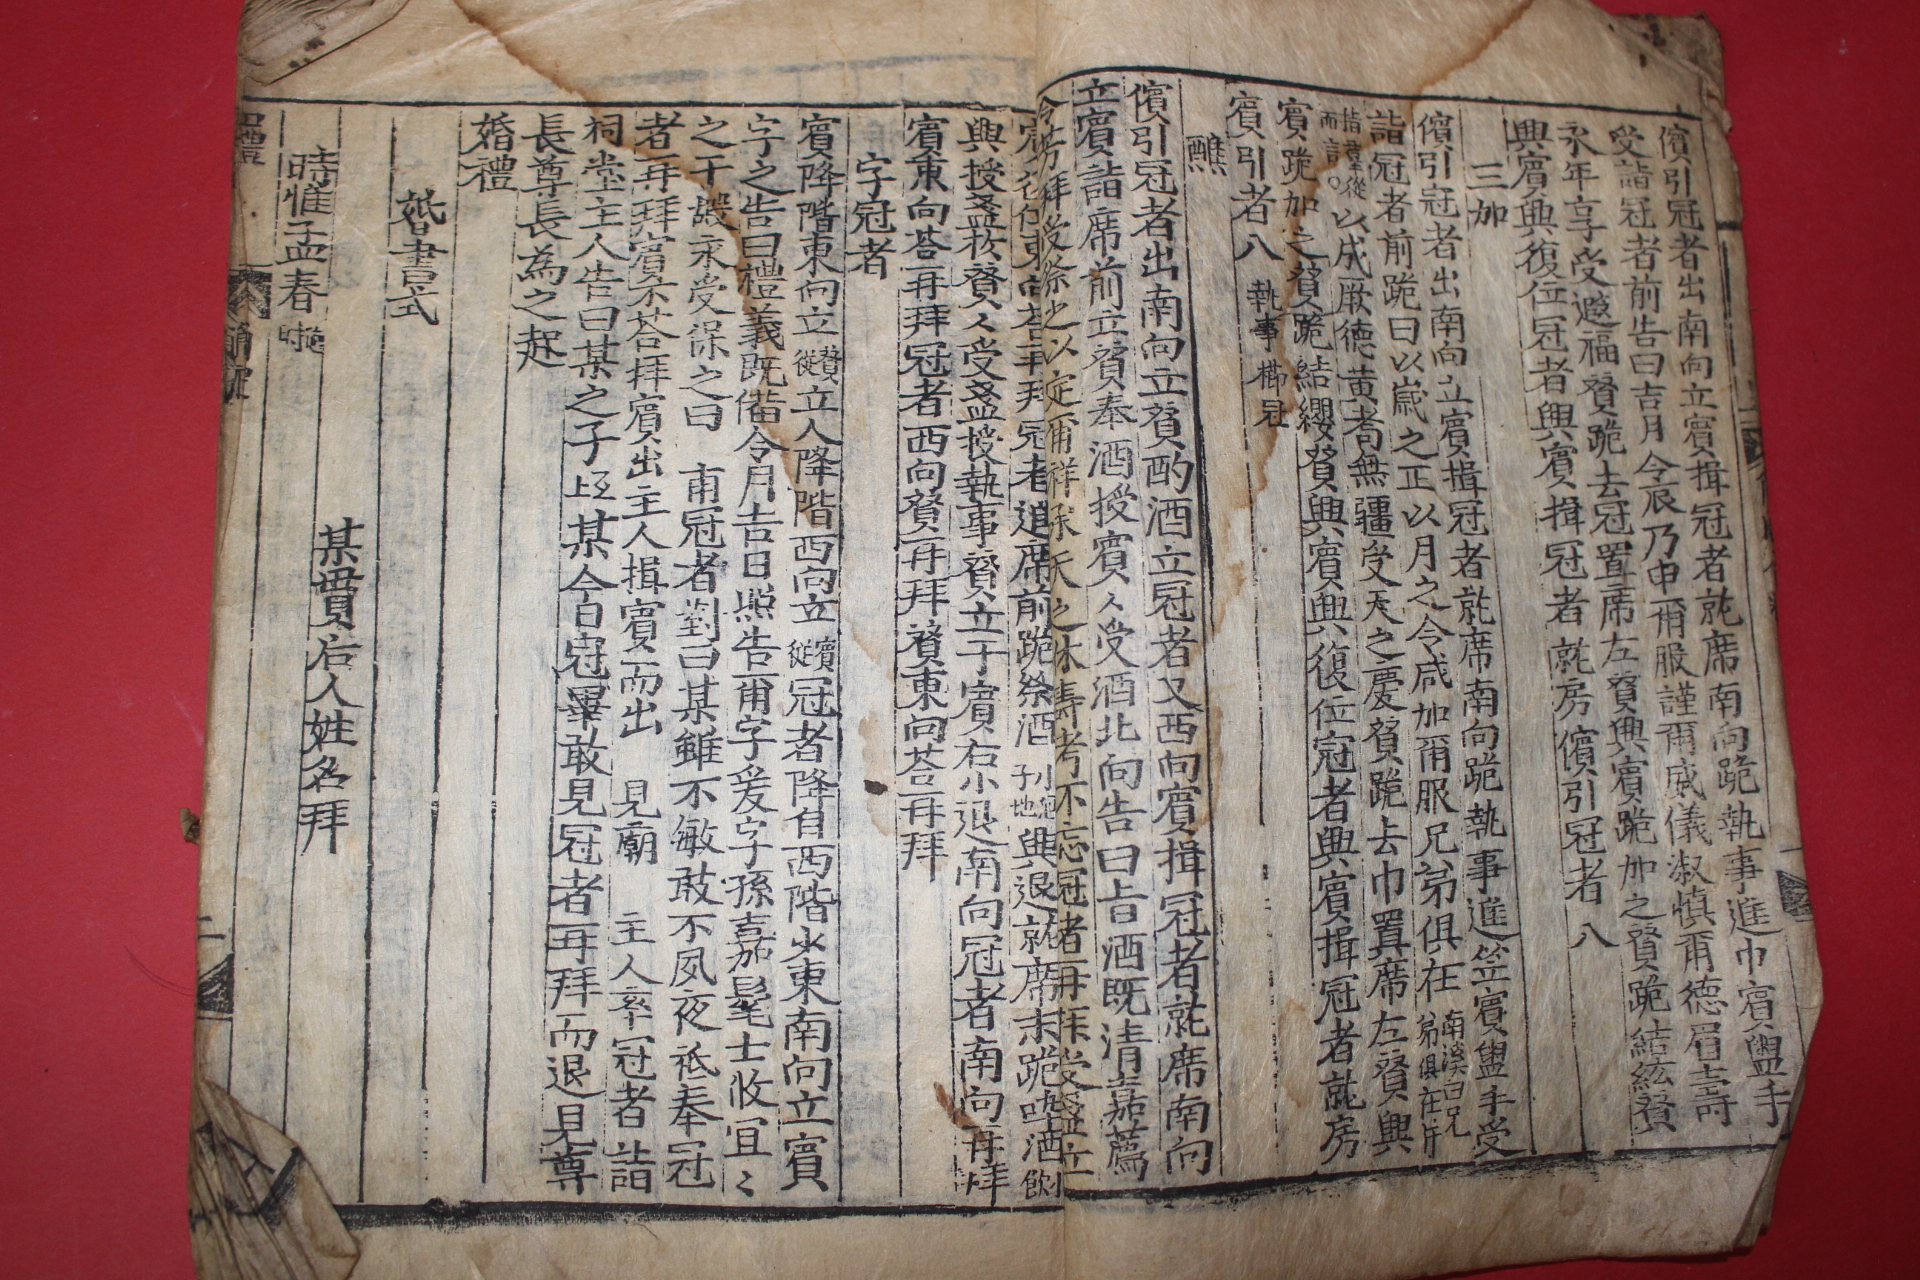 儐引冠者出南向立賓揖冠者就席南向跪執事進巾賓盥手
受詣冠者前告曰吉月令辰乃申爾服謹爾威儀淑愼爾德眉壽
永年享受遐福賛跪去冠置席左賛興賓跪加之賛跪結紘賛
興賓興復位冠者興賓揖冠者就房儐引冠者入
三加
儐引冠者出南向立賓揖冠者就席南向跪執事進笠賓盥手受
詣冠者前跪曰以歲之正以月之令咸加爾服兄弟俱在
以成厥德黃耈無疆受天之慶賛跪去巾置席左賛興
賓跪加之賛跪結纓賛興賓興復位冠者興賓揖冠者就房
賓引者入 執事 櫛 冠
醮
儐引冠者出南向立賛酌酒立冠者又西向賓揖冠者就席南向
立賓詣席前立賛奉酒授賓人受酒北向告曰旨酒旣淸嘉薦
令芳拜受祭之以定爾祥承天之休壽考不忘冠者再拜受盞立
賓復位東向答再拜冠者進席前跪祭酒 興退就席末跪啐酒
興授盞於賛人受盞授執事賛立于賓右小退南向冠者南向再拜
賓東向答再拜冠者西向賛再拜賛東向答再拜
字冠者
賓降階東向立賛從立人降階西向立儐從冠者降自西階少東南向立賓
字之告曰禮義旣備令月吉日昭告爾字爰字孫嘉髦士攸宜〻
之于嘏永受保之曰 甫冠者對曰某雖不敏敢不夙夜祗奉冠
者再拜賓不答拜賓出主人揖賓而出 見廟 主人率冠者詣
祠堂主人告曰某之子某今日冠畢敢見冠者再拜而退見尊
長尊長爲之起
婚禮
婚書式
某貫后人姓名拜
時惟孟春